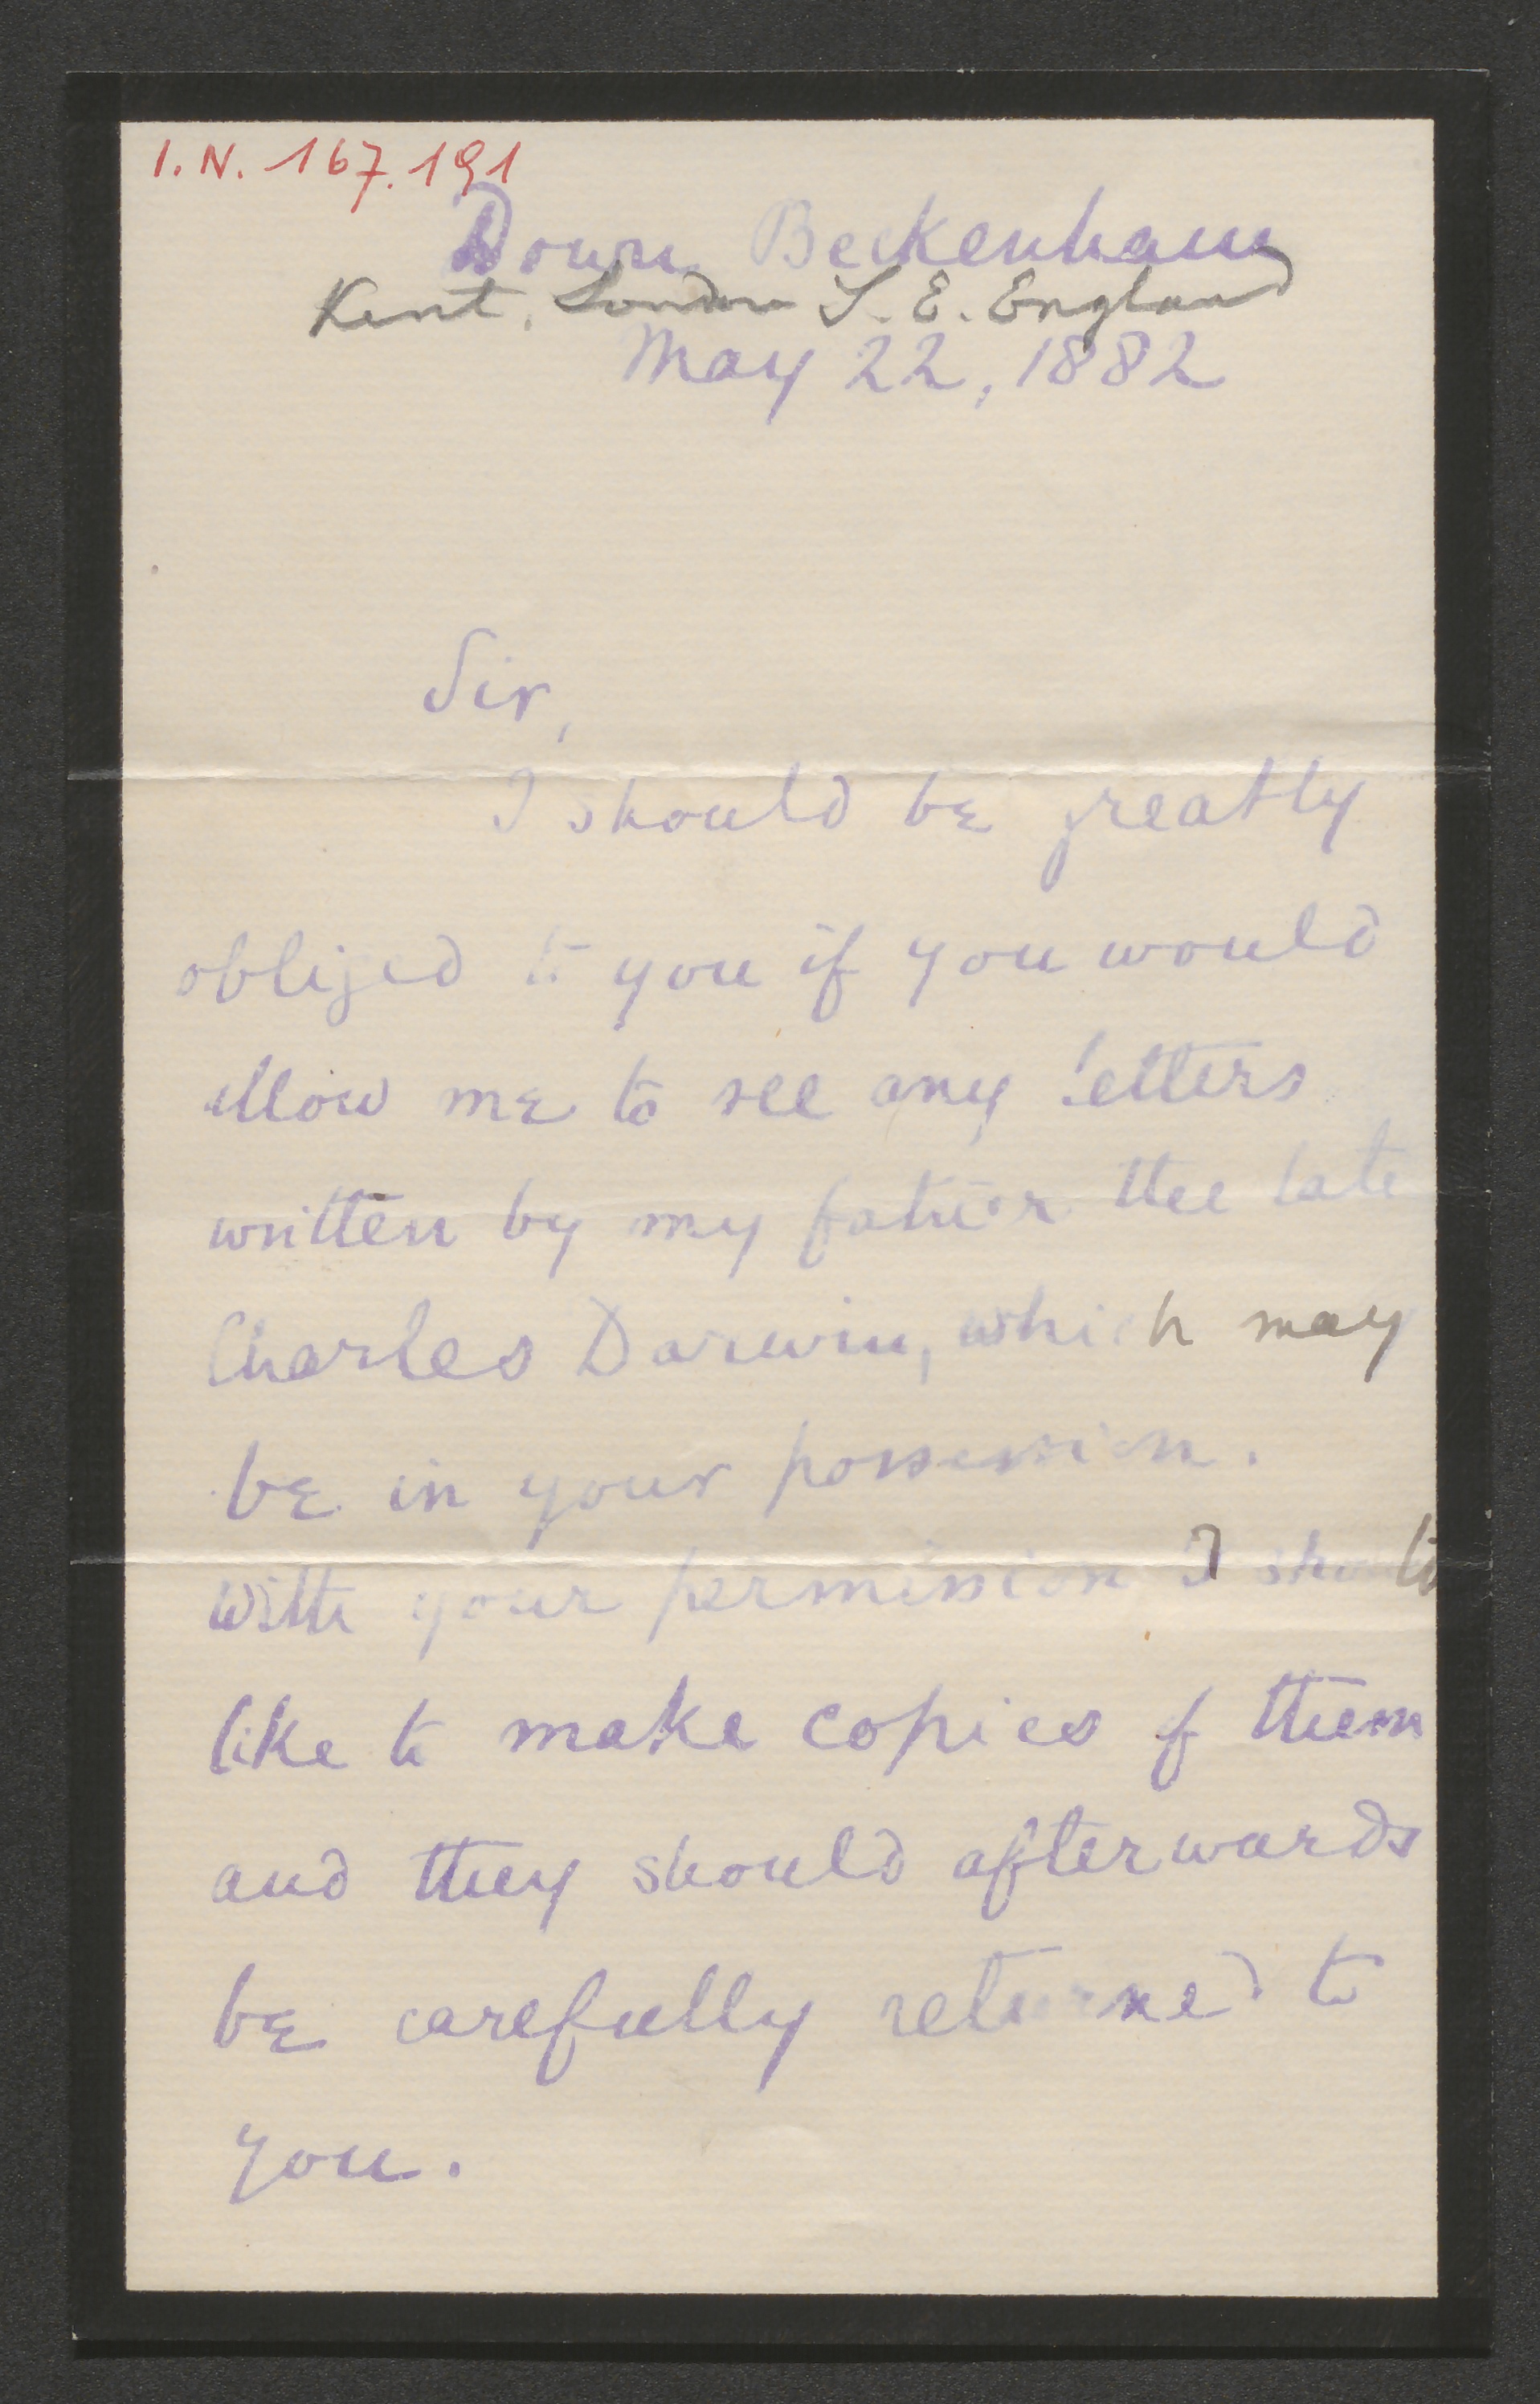 I.N. 167.191
Down Beckenham
Kent, London S.E. England
May 22, 1882
Sir,
I should be greatly
obliged to you if you would
allow me to see any letters
written by my father the late
Charles Darwin, which may
be in your possession.
With your permission I should
like to make copies of them
and they should afterwards
be carefully returned to
you.